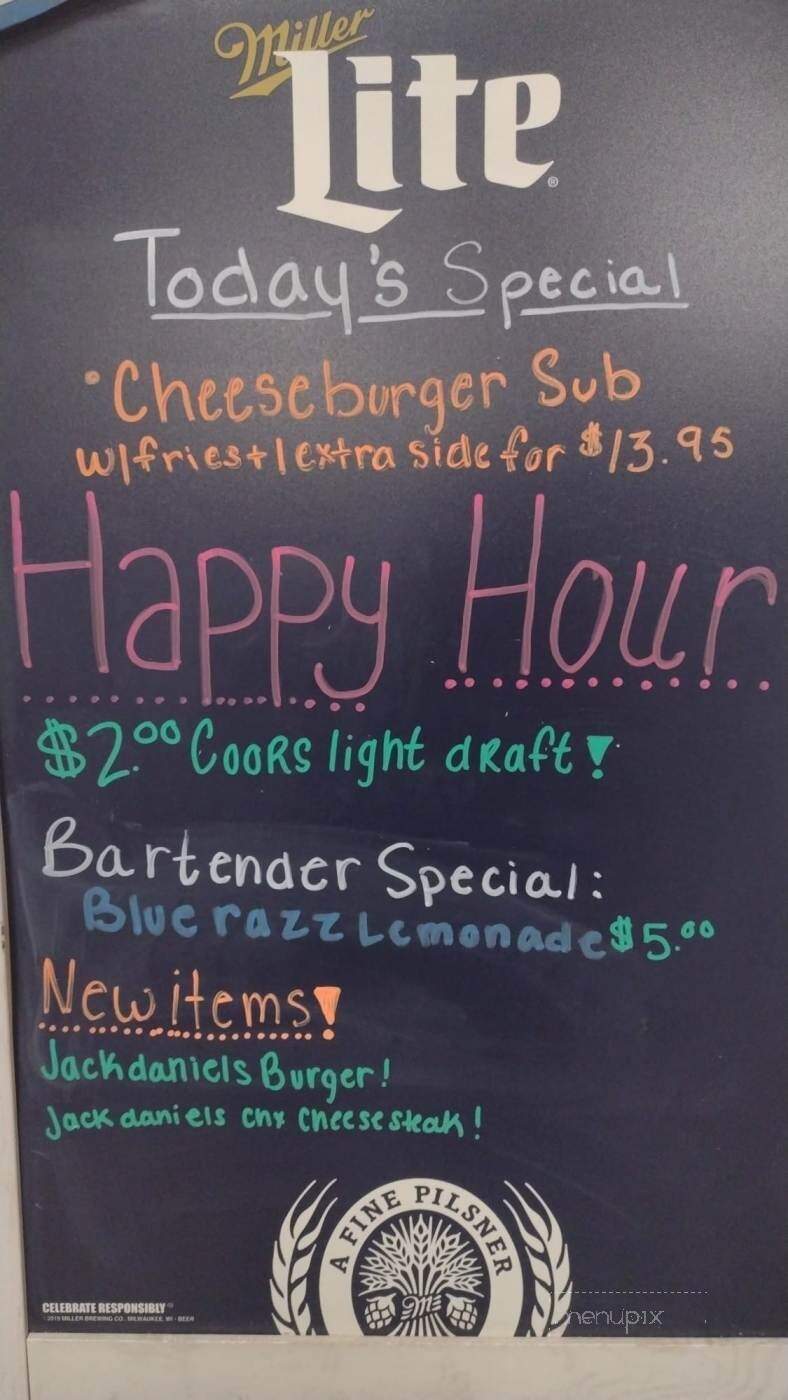 Miller
Lite
Today's Special
• Cheeseburger Sub
w/fries + 1 extra side for $13.95
Happy Hour
$2.00 Coors light draft!
Bartender Special:
Blue razz Lemonade $5.00
New items!
Jack daniels Burger!
Jack daniels chx Cheesesteak!
A FINE PILSNER
CELEBRATE RESPONSIBLY®
©2019 MILLER BREWING CO., MILWAUKEE, WI • BEER
menupix